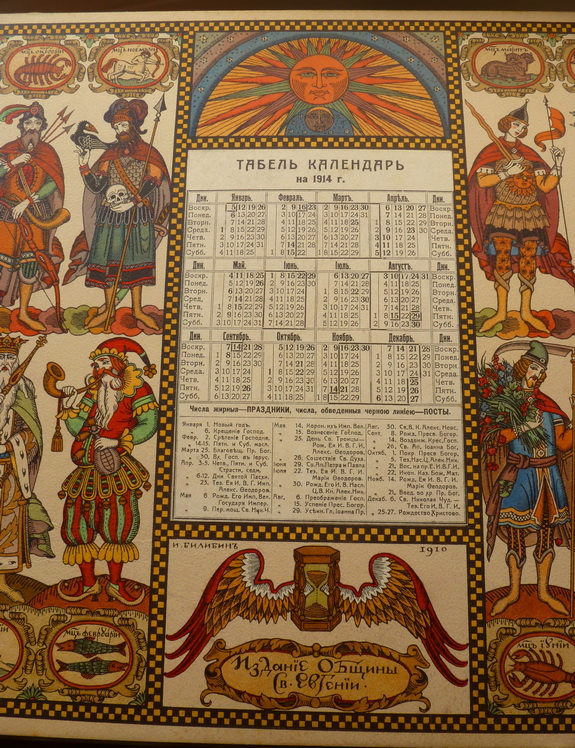 мцъ ноември
мцъ мартъ
ТАБЕЛЬ КАЛЕНДАРЬ
на 1914 г.
Дни. Январь. Февраль. Мартъ. Апрѣль. Дни.
Воскр. 5 12 19 26 2 9 16 23 2 9 16 23 30 6 13 20 27 Воскр.
Понед. 6 13 20 27 3 10 17 24 3 10 17 24 31 7 14 21 28 Понед.
Вторн. 7 14 21 28 4 11 18 25 4 11 18 25 1 8 15 22 29 Вторн.
Среда. 1 8 15 22 29 5 12 19 26 5 12 19 26 2 9 16 23 30 Среда.
Четв. 2 9 16 23 30 6 13 20 27 6 13 20 27 3 10 17 24 Четв.
Пятн. 3 10 17 24 31 7 14 21 28 7 14 21 28 4 11 18 25 Пятн.
Субб. 4 11 18 25 1 8 15 22 1 8 15 22 29 5 12 19 26 Субб.
Дни. Май. Іюнь. Іюль. Августъ. Дни.
Воскр. 4 11 18 25 1 8 15 22 29 6 13 20 27 3 10 17 24 31 Воскр.
Понед. 5 12 19 26 2 9 16 23 30 7 14 21 28 4 11 18 25 Понед.
Вторн. 6 13 20 27 3 10 17 24 1 8 15 22 29 5 12 19 26 Вторн.
Сред. 7 14 21 28 4 11 18 25 2 9 16 23 30 6 13 20 27 Сред.
Четв. 1 8 15 22 29 5 12 19 26 3 10 17 24 31 7 14 21 28 Четв.
Пятн. 2 9 16 23 30 6 13 20 27 4 11 18 25 1 8 15 22 29 Пятн.
Субб. 3 10 17 24 31 7 14 21 28 5 12 19 26 2 9 16 23 30 Субб.
Дни. Сентябрь. Октябрь. Ноябрь. Декабрь. Дни.
Воскр. 7 14 21 28 5 12 19 26 2 9 16 23 30 7 14 21 28 Воскр.
Понед. 1 8 15 22 29 6 13 20 27 3 10 17 24 1 8 15 22 29 Понед.
Вторн. 2 9 16 23 30 7 14 21 28 4 11 18 25 2 9 16 23 30 Вторн.
Среда. 3 10 17 24 1 8 15 22 29 5 12 19 26 3 10 17 24 31 Среда.
Четв. 4 11 18 25 2 9 16 23 30 6 13 20 27 4 11 18 25 Четв.
Пятн. 5 12 19 26 3 10 17 24 31 7 14 21 28 5 12 19 26 Пятн.
Субб. 6 13 20 27 4 11 18 25 1 8 15 22 29 6 13 20 27 Субб.
Числа жирныя—ПРАЗДНИКИ, числа, обведенныя черною линіею—ПОСТЫ.
Января 1. Новый годъ.
6. Крещеніе Господ.
Февр. 2. Срѣтеніе Господне.
14.15. Пятн. и Суб. масл.
Марта 25. Благовѣщ. Пр. Бог.
30. Вх. Госп. въ Іерус.
Апр. 3.-5. Четв., Пятн. и Суб.
Страстн. седм.
6.-12. Дни Святой Пасхи.
23. Тез. Ея И. В. Г. Имп.
Алекс. Ѳеодоровн.
Мая 6. Рожд. Его Имп. Вел.
Государя Импер.
9. Пер. мощ. Св. Ник. Ч.
Мая 14. Корон. ихъ Имп. Вел.
15. Вознесеніе Господ.
25. День Св. Троицы—
Рож. Ея И. В. Г. И.
Алекс. Ѳеодоров.
26. Сошествіе Св. Духа.
Іюня 29. Св. Ап. Петра и Павла
Іюля 22. Тез. Ея И. В. Г. И.
Маріи Ѳеодоров.
30. Рожд. Его И. В. Н.
Ц. В. Кн. Алек. Ник.
Авг. 6. Преображеніе Госп.
15. Успеніе Прес. Богор.
29. Усѣкн. Гл. Іоанна Пр.
Авг. 30. Св. В. К. Алекс. Невс.
Сент. 8. Рожд. Пресв. Богор.
14. Воздвиж. Крес. Госп.
26. Св. Ап. Іоанна Бог.
Октяб. 1. Покр. Пресв. Богор.
5. Тез. Нас. Ц. Алек. Ник.
21. Вос. на пр. Е. И. В. Г. И.
22. Икон. Каз. Бож. Мат.
Нояб. 14. Рожд. Ея И. В. Г. И.
Маріи Ѳеодоров.
21. Введ. во хр. Пр. Бог.
Декаб. 6. Св. Николая Чуд. —
Тез. Его И. В. Г. И.
25.-27. Рождество Христово.
И. БИЛИБИНЪ 1910
мцъ февраріи
мцъ іуніи
ИзДАНІЕ ОБЩИНЫ
Св. ЕВГЕНІИ.